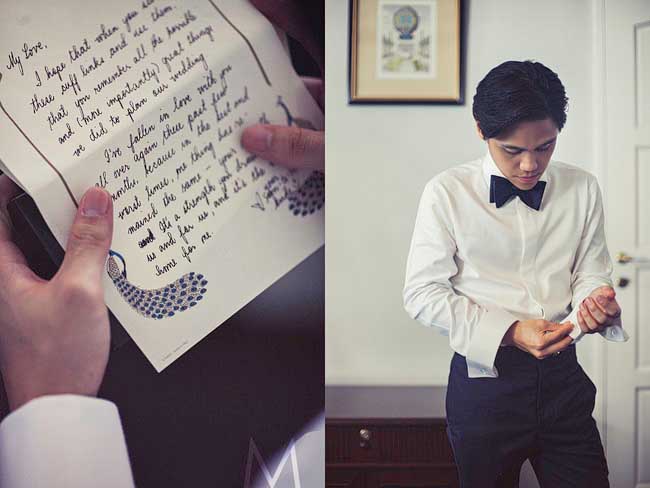 My Love,
I hope that when you see
these cuff links and use them.
that you remember all the horrible
and (more importantly) great things
we did to plan our wedding
I've fallen in love with you
all over again these past few
months, because in the best and
worst times, one thing has re-
mained the same - you're
and It's a strength and
us and for us, and it's the
home for me.
M